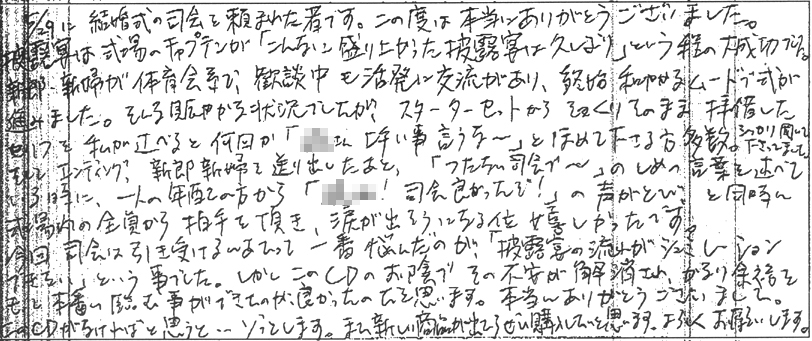 5/29に結婚式の司会を頼まれた者です。この度は本当にありがとうございました。
披露宴は式場のキャプテンが「こんなに盛り上がった披露宴は久しぶり」という程の大成功でした。
新郎・新婦が体育会系で、歓談中も活発に交流があり、終始和やかなムードで式が
進みました。そんな賑やかな状況でしたが、スターターセットからそっくりそのまま拝借した
セリフを私が述べると何回か「 さん 良い事言うな〜」とほめて下さる方多数。しっかり聞いて下さってました
そして エンディング、新郎新婦を送り出したあと、「つたない司会で〜」の しめの言葉を述べて
いる時に、一人の年配の方から「 ! 司会良かったぞ!」の声がとび と同時に
式場内の全員から拍手を頂き、涙が出そうになる位嬉しかったです。
今回司会を引き受けるにあたって一番悩んだのが、「披露宴の流れがシュミレーション
できない」という事でした。しかしこのCDのお陰でその不安が解消され、かなり余裕を
もって本番に臨む事ができたのが良かったのだと思います。本当にありがとうございました。
このCDがなければと思うと…ゾッとします。また新しい商品が出たらぜひ購入したいと思います。よろしくお願いします。